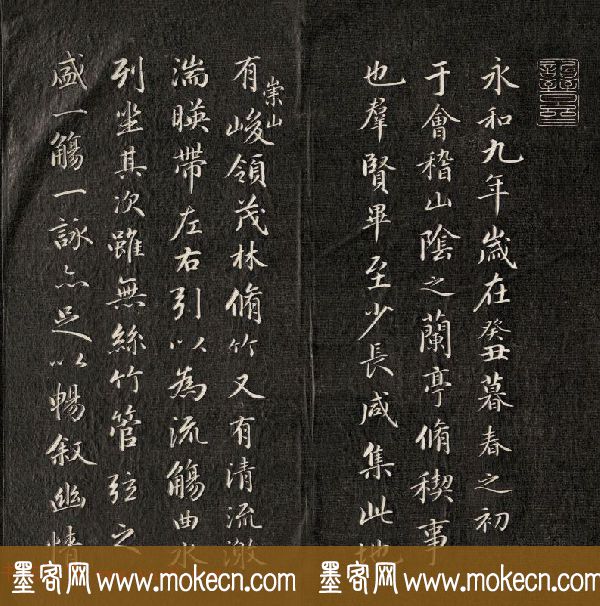 永和九年歲在癸丑暮春之初
于會稽山陰之蘭亭脩稧事
也羣賢畢至少長咸集此地
有崇山峻領茂林脩竹又有清流激
湍暎帶左右引以為流觴曲水
列坐其次雖無絲竹管弦之
盛一觴一詠亦足以暢叙幽情
墨客网 www.mokecn.com 墨客网 www.mokecn.com